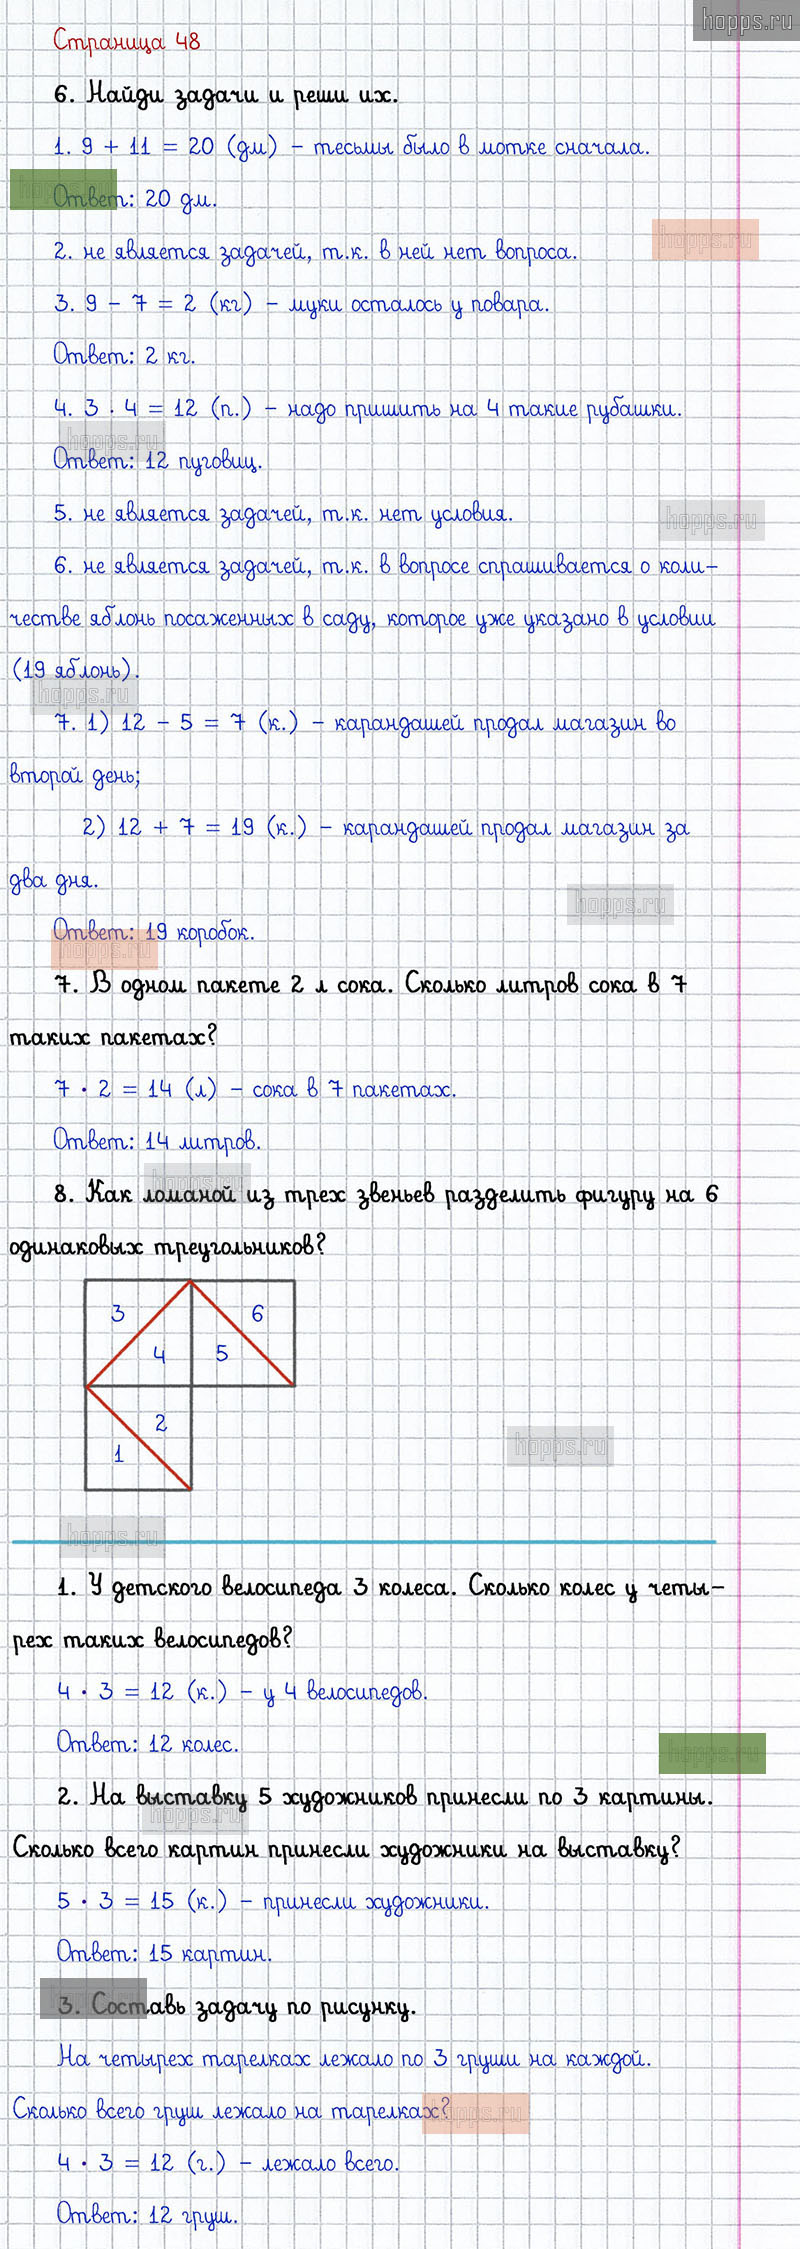 hopps.ru
Страница 48
6. Найди задачи и реши их.
1. 9 + 11 = 20 (дм) – тесьмы было в мотке сначала.
hopps.ru
Ответ: 20 дм.
hopps.ru
2. не является задачей, т.к. в ней нет вопроса.
3. 9 – 7 = 2 (кг) – муки осталось у повара.
Ответ: 2 кг.
4. 3 · 4 = 12 (п.) – надо пришить на 4 такие рубашки.
hopps.ru
Ответ: 12 пуговиц.
5. не является задачей, т.к. нет условия.
hopps.ru
6. не является задачей, т.к. в вопросе спрашивается о коли–
честве яблонь посаженных в саду, которое уже указано в условии
(19 яблонь).
hopps.ru
7. 1) 12 – 5 = 7 (к.) – карандашей продал магазин во
второй день;
2) 12 + 7 = 19 (к.) – карандашей продал магазин за
два дня.
hopps.ru
Ответ: 19 коробок.
hopps.ru
7. В одном пакете 2 л сока. Сколько литров сока в 7
таких пакетах?
7 · 2 = 14 (л) – сока в 7 пакетах.
Ответ: 14 литров.
hopps.ru
8. Как ломаной из трех звеньев разделить фигуру на 6
одинаковых треугольников?
3 6
4 5
2
1
hopps.ru
hopps.ru
1. У детского велосипеда 3 колеса. Сколько колес у четы–
рех таких велосипедов?
4 · 3 = 12 (к.) – у 4 велосипедов.
Ответ: 12 колес.
hopps.ru
2. На выставку 5 художников принесли по 3 картины.
hopps.ru
Сколько всего картин принесли художники на выставку?
5 · 3 = 15 (к.) – принесли художники.
Ответ: 15 картин.
hopps.ru
3. Составь задачу по рисунку.
На четырех тарелках лежало по 3 груши на каждой.
Сколько всего груш лежало на тарелках?
hopps.ru
4 · 3 = 12 (г.) – лежало всего.
Ответ: 12 груш.